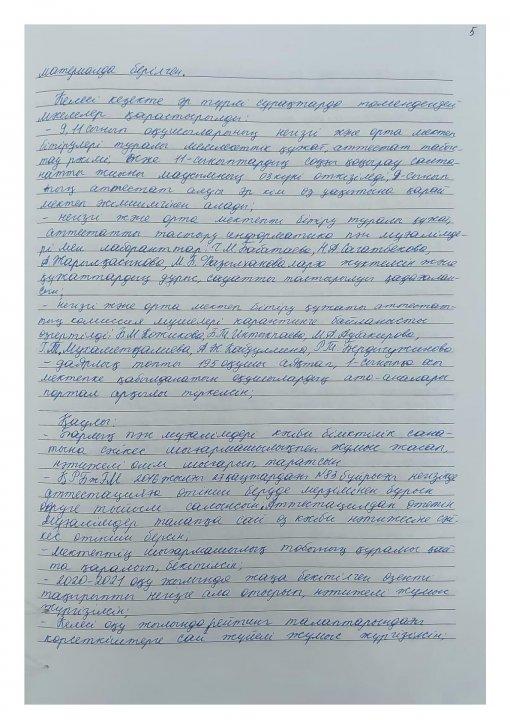 5
материалда берілген.
Келесі кезекте әр түрлі сұрақтарда төмендегідей
мәселелер қарастырылды:
- 9, 11 сынып оқушыларының негізгі және орта мектеп
бітірулері туралы мемлекеттік құжат, аттестат табыс
тау рәсімі және 11-сыныптардың соңғы қоңырау салта-
натты жиыны мадақтаманың өз күні өткізілді, 9-сынып-
тың аттестат алуға әр кім өз уақытына қарай
мектеп әкімшілігінен алады;
- негізгі және орта мектепті бітіру туралы құжат,
аттестатты тастыру информатика пән мұғалімде-
рі мен лаборанттар: Г.М. Байтаева, Н.А. Сағатбекова,
А. Жарылқасынова, М.Б. Фазылханова ларға жүктелсін және
құжаттардың дұрыс, сауатты толтырылуы қадағалан-
сын;
- негізгі және орта мектеп бітіру құжаты аттестат-
тың комиссия мүшелері карантинге байланысты
өзгертілді: Б.М. Кожикова, Б.Т. Иктыпаева, М.А. Аубакирова,
Г.Т. Мухаметкалиева, А.К. Кайдуллина, Р.Т. Бердыгужинова
- даярлық топты 195 оқушы аяқтап, 1-сыныпқа осы
мектепке қабылданатын оқушылардың ата-аналары
портал арқылы тіркелсін;
Қаулы:
- барлық пән мұғалімдері кәсіби біліктілік сана-
тына сәйкес шығармашылықпен жұмыс жасап,
нәтижелі өнім шығарып таратсын
- ҚР БжҒМ 2016 жылғы 27 қаңтардағы №83 бұйрығы негізінде
аттестацияға өтініш беруде мерзімінен бұрын
беруге тыйым салынсын, Аттестациядан өтетін
мұғалімдер талапқа сай өз кәсіби нәтижесіне сәй-
кес өтініш берсін;
- Мектептің шығармашылық тобының құрамы қай-
та қаралып, бекітілсін;
- 2020-2021 оқу жылында жаңа бекітілген өзекті
тақырыпты негізге ала отырып, нәтижелі жұмыс
жүргізілсін;
- Келесі оқу жылында рейтинг талаптарындағы
көрсеткіштерге сай жүйелі жұмыс жүргізілсін;